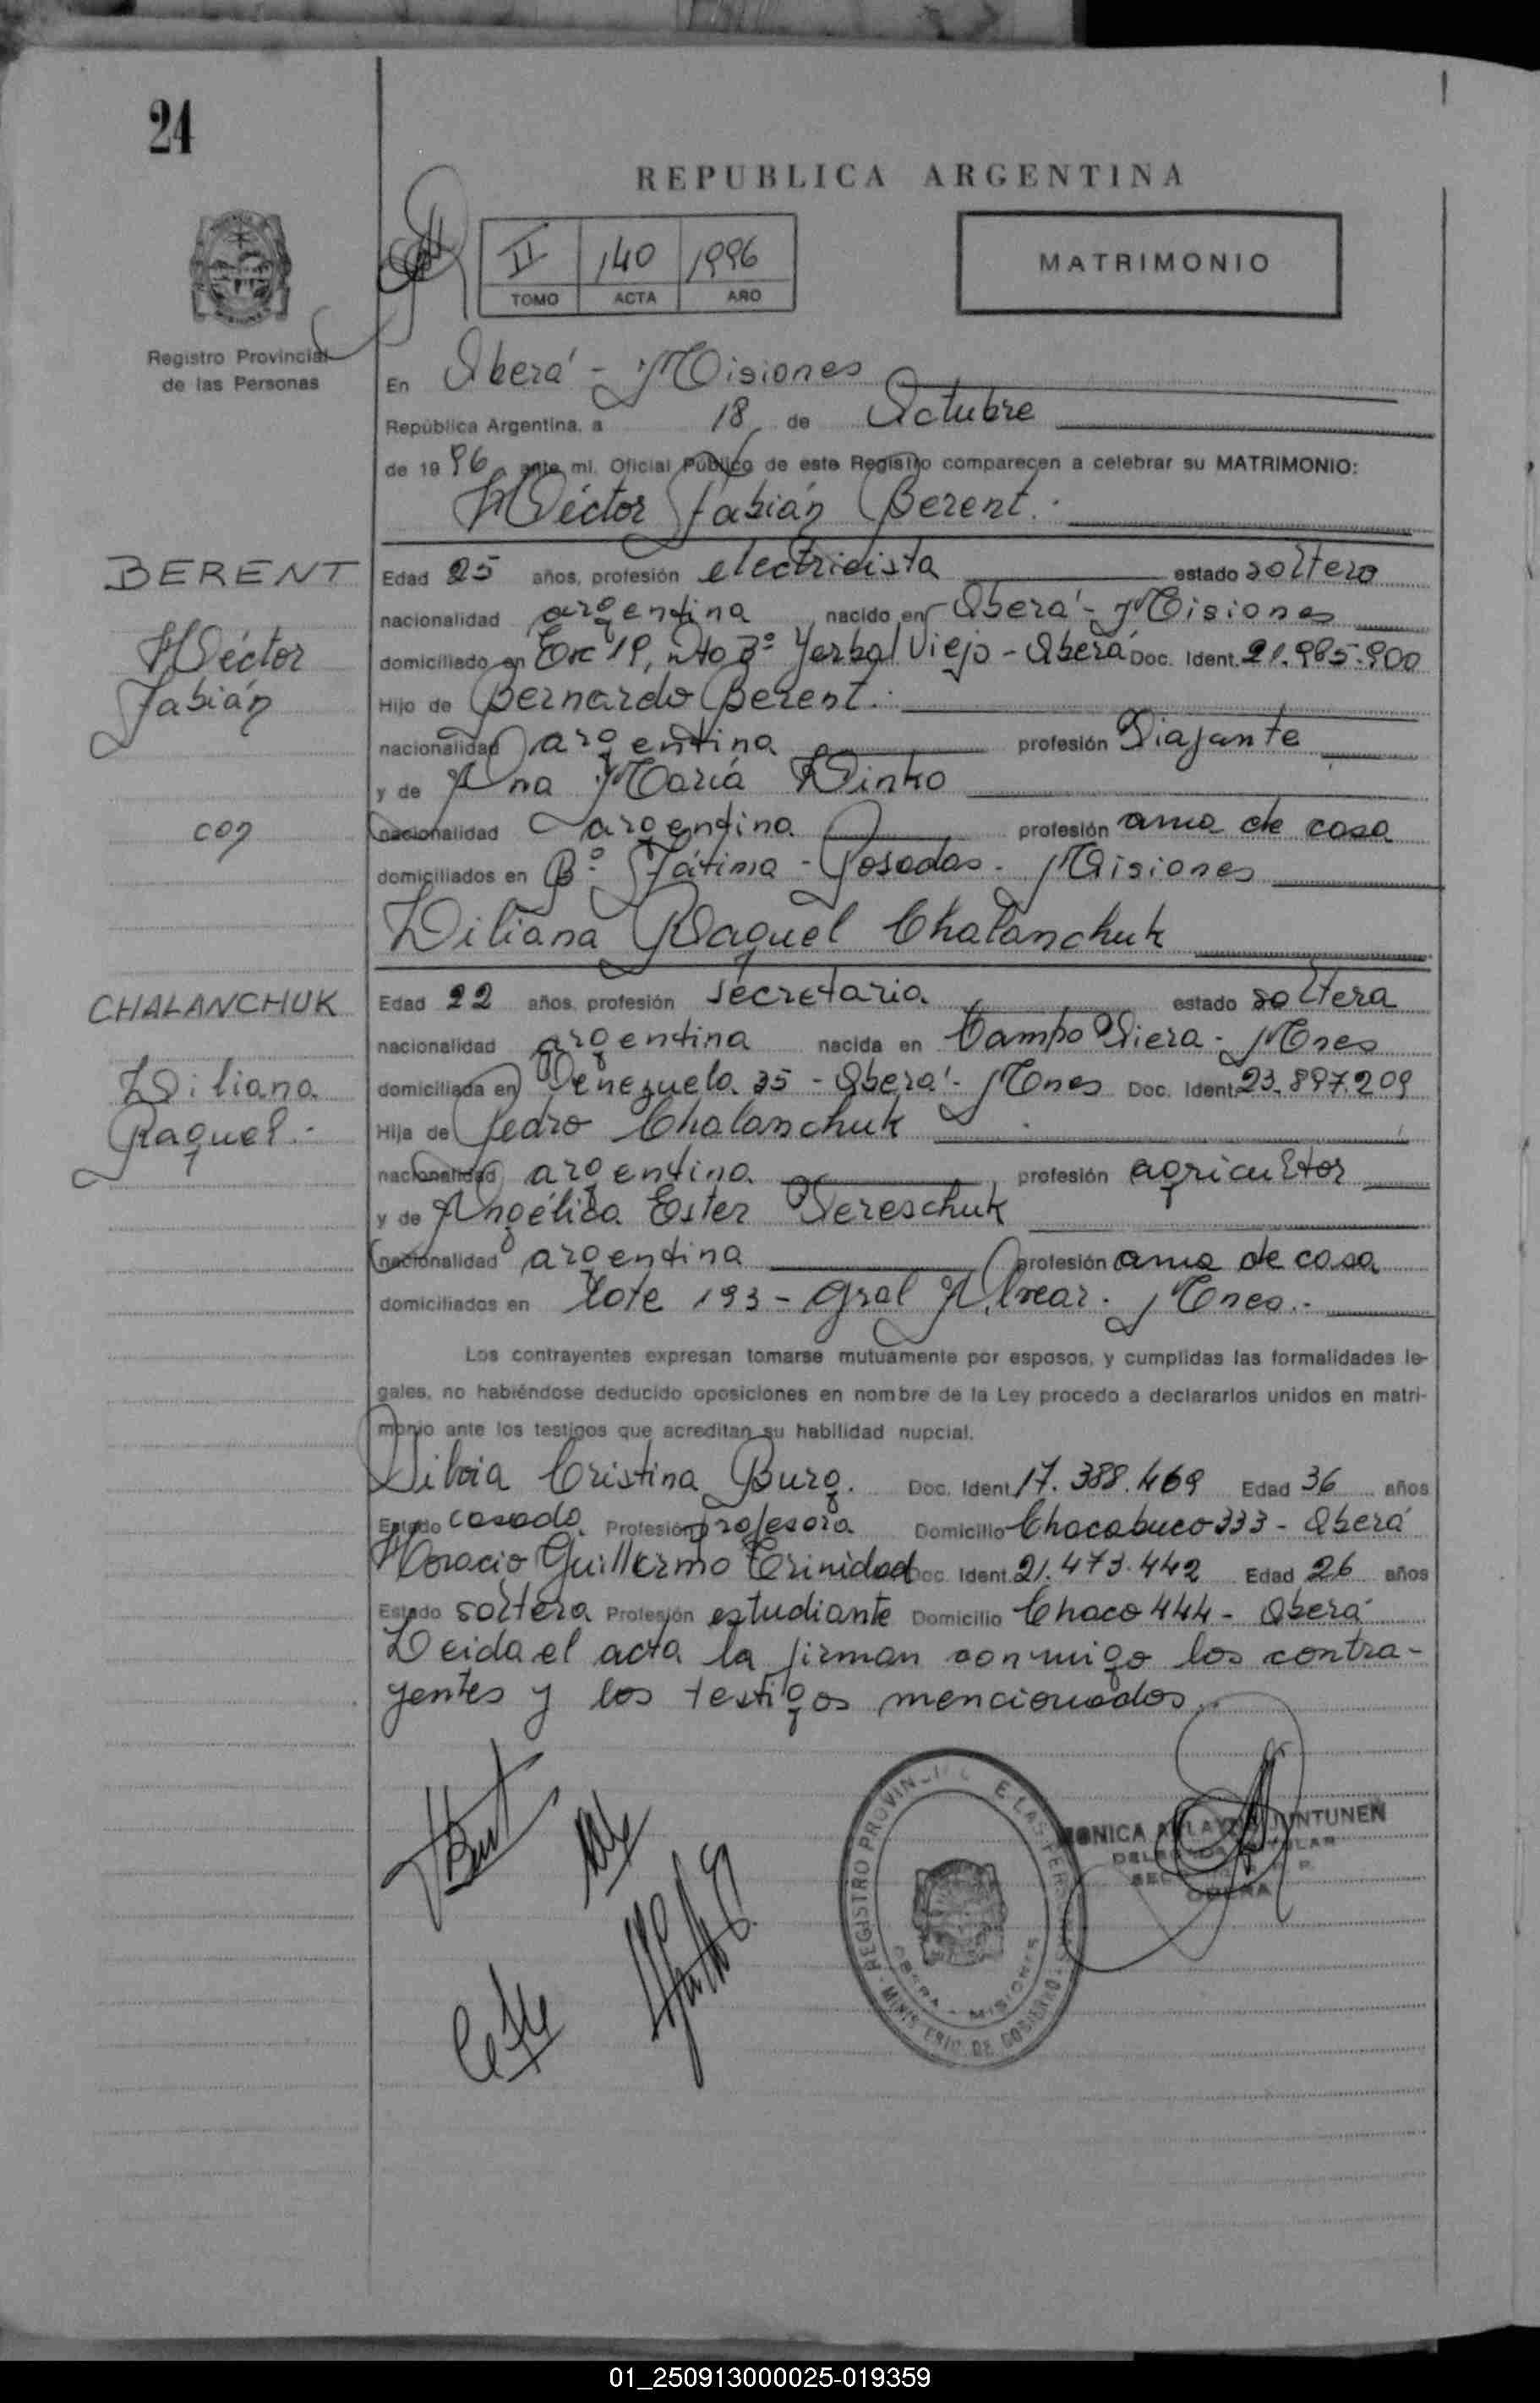 24
REPUBLICA ARGENTINA
II 140 1996
TOMO ACTA AÑO
MATRIMONIO
Registro Provincial
de las Personas
En Oberá - Misiones
República Argentina, a 18 de Octubre
de 1996, ante mi, Oficial Público de este Registro comparecen a celebrar su MATRIMONIO:
Héctor Fabián Berent.-
BERENT
Héctor
Fabián
con
CHALANCHUK
Liliana
Raquel.-
Edad 25 años, profesión electricista estado soltero
nacionalidad argentina nacido en Oberá - Misiones
domiciliado en Esc 19, Bº Yerbal Viejo - Oberá Doc. Ident. 21.985.900
Hijo de Bernardo Berent.
nacionalidad argentina profesión Viajante
y de Ana María Linko
nacionalidad argentina profesión ama de casa
domiciliados en Bº Fátima - Posadas - Misiones
Liliana Raquel Chalanchuk
Edad 22 años, profesión secretaria estado soltera
nacionalidad argentina nacida en Campo Viera - Mnes
domiciliada en Venezuela 35 - Oberá - Mnes Doc. Ident. 23.897.209
Hija de Pedro Chalanchuk
nacionalidad argentina profesión agricultor
y de Angélica Ester Vereschuk
nacionalidad argentina profesión ama de casa
domiciliados en Lote 193 - Gral Alvear - Mnes.-
Los contrayentes expresan tomarse mutuamente por esposos, y cumplidas las formalidades le-
gales, no habiéndose deducido oposiciones en nombre de la Ley procedo a declararlos unidos en matri-
monio ante los testigos que acreditan su habilidad nupcial.
Silvia Cristina Burg. Doc. Ident. 17.388.469 Edad 36 años
Estado casada Profesión profesora Domicilio Chacabuco 333 - Oberá
Horacio Guillermo Trinidad Doc. Ident. 21.473.442 Edad 26 años
Estado soltera Profesión estudiante Domicilio Chaco 444 - Oberá
Leida el acta la firman conmigo los contra-
yentes y los testigos mencionados.-
REGISTRO PROVINCIAL DE LAS PERSONAS
OBERA - MISIONES
MINISTERIO DE GOBIERNO
MONICA JUNTUNEN
OBERA
01_250913000025-019359